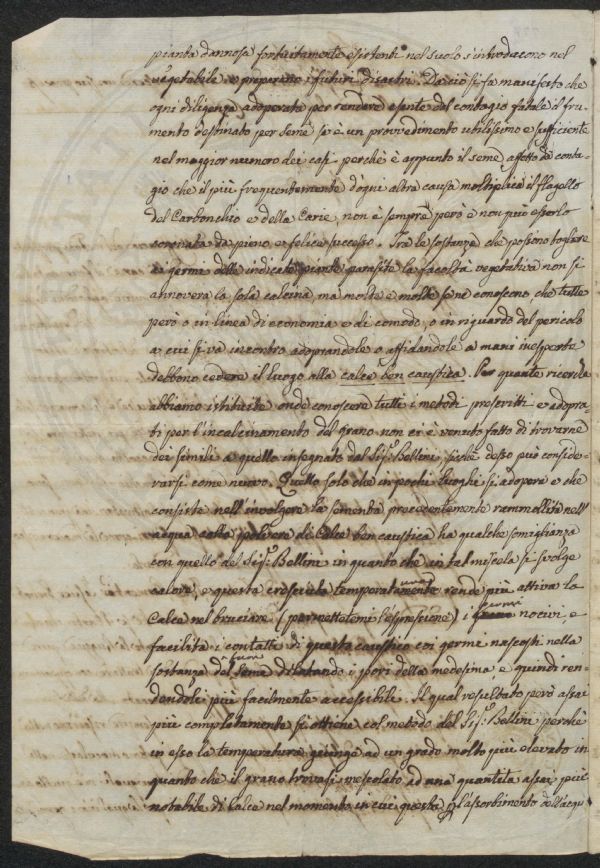 pianta dannosa fortuitamente esistenti nel suolo s'introducono nel
vegetabile e preperano i futuri disastri. Da ciò si fa manifesto che
ogni diligenza adoperata per rendere esente dal contagio fatale il fru-
mento destinato per seme si è un provvedimento utilissimo e sufficiente
nel maggior numero dei casi perchè è appunto il seme affetto da conta-
gio che il più frequentemente d'ogni altra causa moltiplica il flagello
del Carbonchio e della Carie, non è sempre però e non può esserlo
coronata da pieno e felice successo. Tra le sostanze che possono togliere
ai germi delle indicate piante parasite la facoltà vegetativa non si
annovera la sola calcina ma molte e molte se ne conoscono che tutte
però o in linea di economia e di comodo, o in riguardo del pericolo
a cui si va incontro adoprandole o affidandole a mani inesperte
debbono cedere il luogo alla calce ben caustica. Per quante ricerche
abbiamo istituite onde conoscere tutti i metodi prescritti e adopra-
ti per l'incalcinamento del grano non ci è venuto fatto di trovarne
dei simili a quello insegnato dal Sig.r Bellini, sicchè desso può conside-
rarsi come nuovo. Quello solo che in pochi luoghi si adopera e che
consiste nell'involgere la sementa precedentemente rammollita nell'
acqua nella polvere di Calce ben caustica ha qualche somiglianza
con quello del Sig.r Bellini in quanto che in tal miscela si svolge
calore, e questa cresciuta temperatura rende più attiva la
Calce nel bruciare (permettetemi l'espressione) i germi nocivi e
facilita i contatti di questo caustico coi germi nascosti nella
sostanza del seme dilatando i pori della medesima e quindi ren-
dendoli più facilmente accessibili. Il qual resultato però assai
più completamente si ottiene col metodo del Sig.r Bellini perchè
in esso la temperatura giunge ad un grado molto più elevato in
quanto che il grano trovasi mescolato ad una quantità assai più
notabile di Calce nel momento in cui questa l'assorbimento dell'acqu